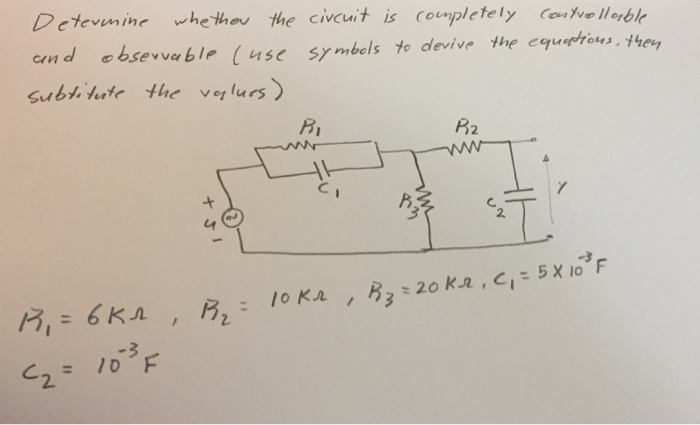 Determine whether the circuit is completely controllable
and observable (use symbols to derive the equations, then
subtitute the values)
R1
R2
C1
R3
C2
Y
+
u
-
R1 = 6KΩ , R2 = 10 KΩ , R3 = 20 KΩ , C1 = 5 X 10^-3 F
C2 = 10^-3 F